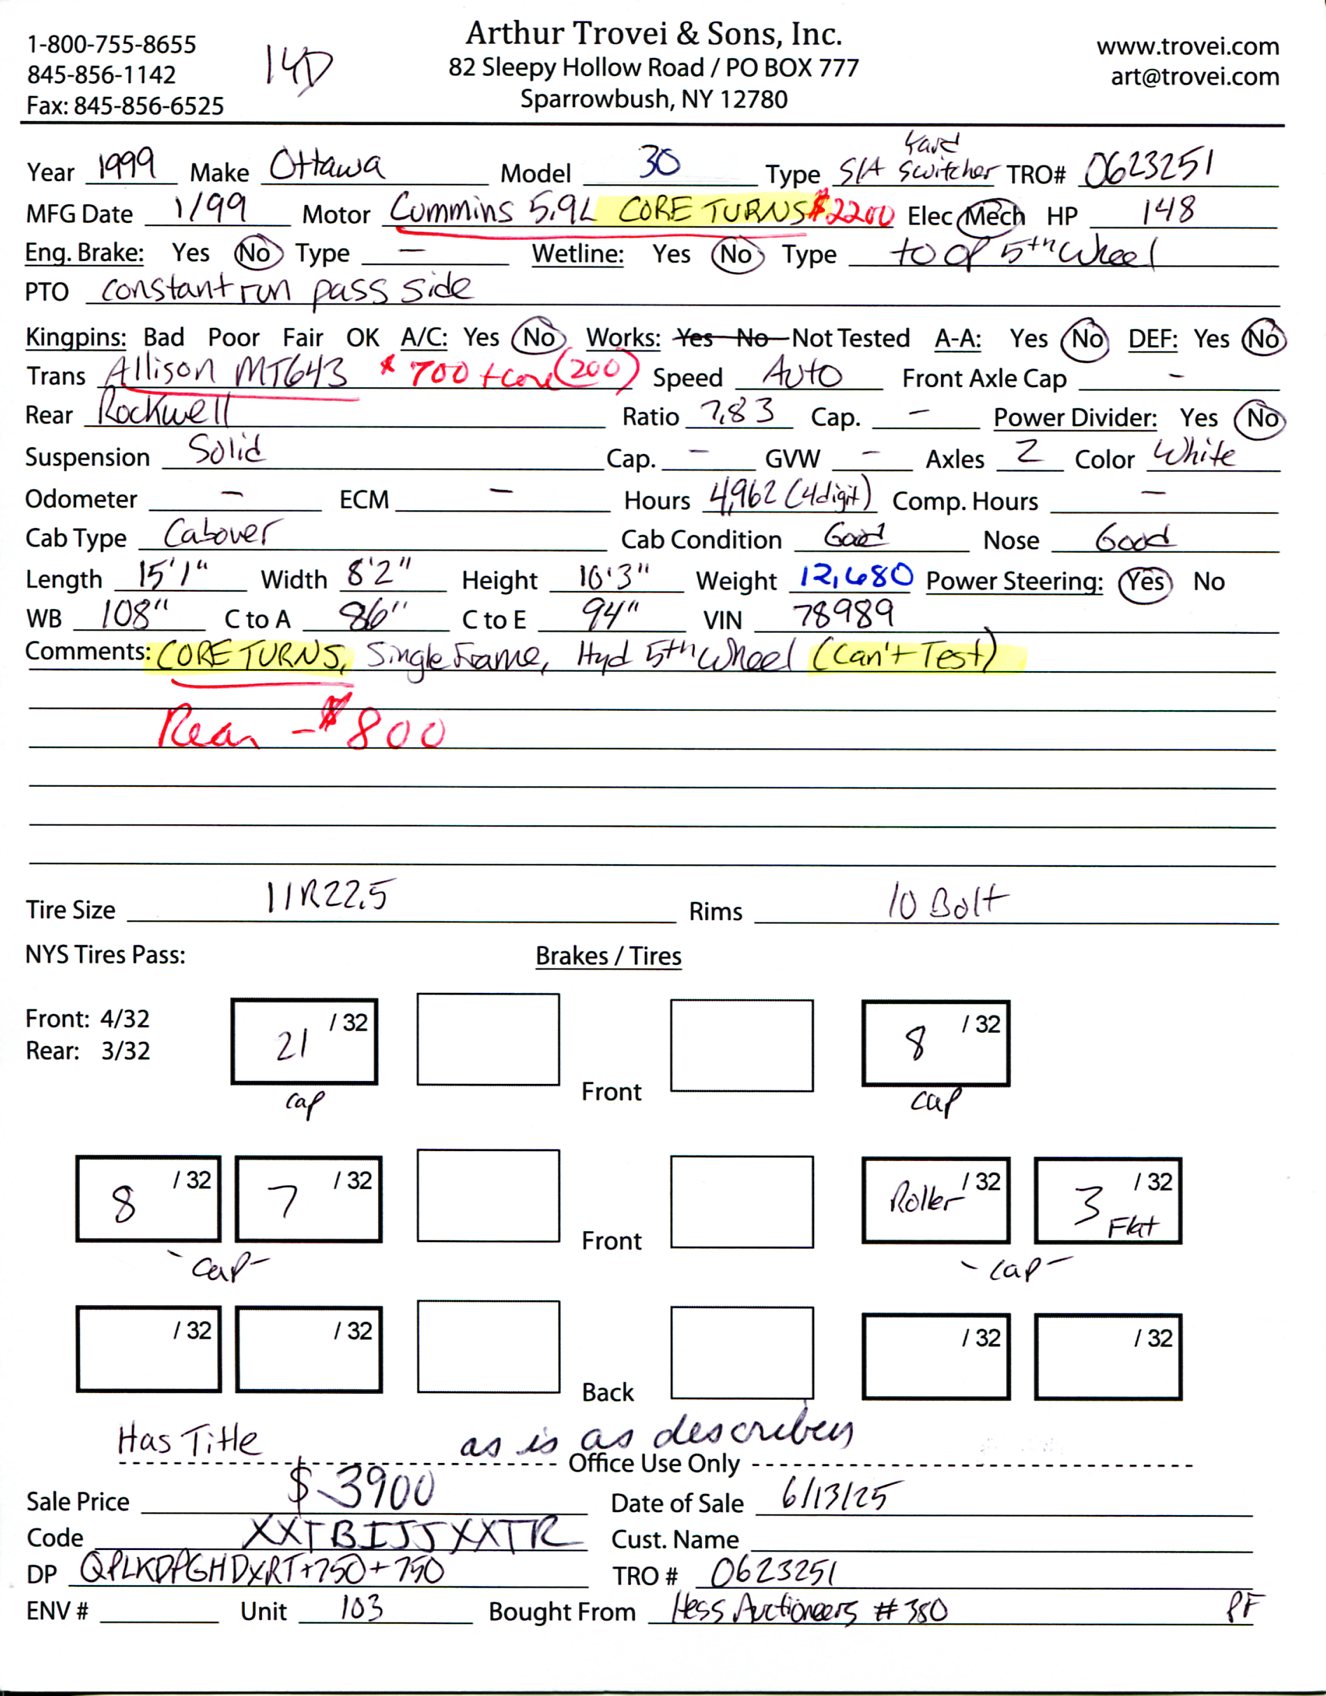 1-800-755-8655
845-856-1142
Fax: 845-856-6525
14D
Arthur Trovei & Sons, Inc.
82 Sleepy Hollow Road / PO BOX 777
Sparrowbush, NY 12780
www.trovei.com
art@trovei.com
Year 1999 Make Ottawa Model 30 Type S/A Yard Switcher TRO# 0623251
MFG Date 1/99 Motor Cummins 5.9L CORE TURNS $2200 Elec Mech HP 148
Eng. Brake: Yes No Type — Wetline: Yes No Type to op 5th Wheel
PTO constant run pass side
Kingpins: Bad Poor Fair OK A/C: Yes No Works: Yes No Not Tested A-A: Yes No DEF: Yes No
Trans Allison MT643 $700 + Core (200) Speed Auto Front Axle Cap -
Rear Rockwell Ratio 7.83 Cap. — Power Divider: Yes No
Suspension Solid Cap. - GVW - Axles 2 Color White
Odometer - ECM - Hours 4,962 (4digit) Comp. Hours —
Cab Type Cabover Cab Condition Good Nose Good
Length 15'1" Width 8'2" Height 10'3" Weight 12,680 Power Steering: Yes No
WB 108" C to A 86" C to E 94" VIN 78989
Comments: CORE TURNS, Single Frame, Hyd 5th Wheel (Can't Test)
Rear - $800
Tire Size 11R22.5 Rims 10 Bolt
NYS Tires Pass: Brakes / Tires
Front: 4/32
Rear: 3/32
21 /32 8 /32
Front
cap cap
8 /32 7 /32 Roller /32 3 Flat /32
Front
-cap- -cap-
/32 /32 /32 /32
Back
Has Title as is as described
Office Use Only
Sale Price $3900 Date of Sale 6/13/25
Code XXTBIJJXXTR Cust. Name
DP QPLKDPGHDXRT+750+750 TRO # 0623251
ENV # Unit 103 Bought From Hess Auctioneers #380 PF